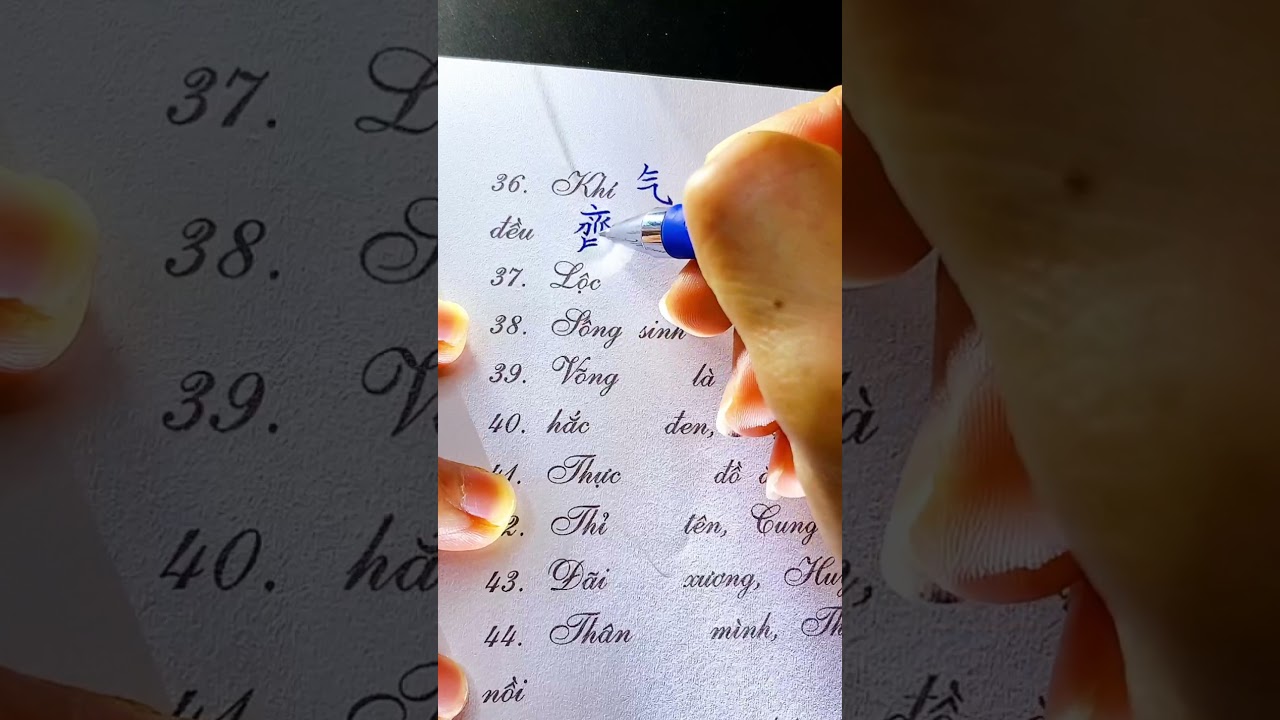 36. Khí 气
đều
37. Lộc
38. Sông sinh
39. Võng là
40. hắc đen,
41. Thực đồ
42. Thỉ tên, Cung
43. Đãi xương,
44. Thân mình,
nồi